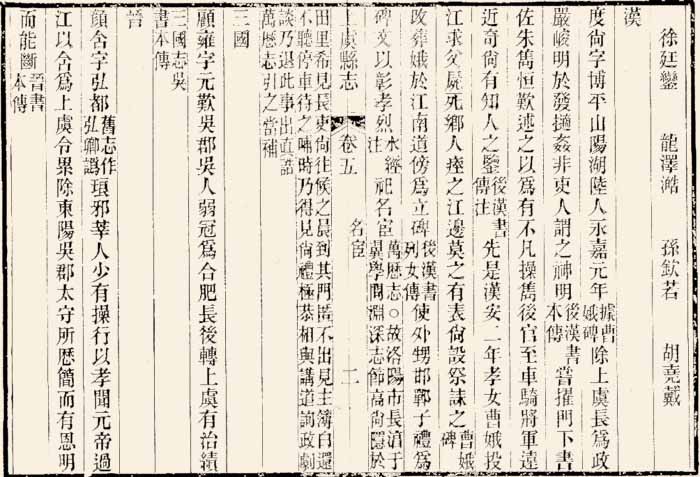 徐廷鑾 龍澤澔 孫欽若 胡堯戴
漢
度尙字博平山陽湖陸人永嘉元年據曹娥碑除上虞長爲政
嚴峻明於發擿姦非吏人謂之神明後漢書本傳嘗擢門下書
佐朱雋恒歎述之以爲有不凡操雋後官至車騎將軍遠
近奇尙有知人之鑒後漢書傳注先是漢安二年孝女曹娥投
江求父屍死鄉人瘞之江邊莫之有表尙設祭誄之曹娥碑
改葬娥於江南道傍爲立碑後漢書列女傳使外甥邯鄲子禮爲
碑文以彰孝烈水經注祀名宦萬歷志○故洛陽市長淯于翼學問淵深志節高尙隱於
上虞縣志 卷五 名宦 二
田里希見長吏尙往候之晨到其門翼不出見主簿白還
不聽停車待之晡時乃得見尙禮極恭相與講道詢政劇
談乃退此事出直誥
萬歷志引之當補
三國
顧雍字元歎吳郡吳人弱冠爲合肥長後轉上虞有治績
三國志吳書本傳
晉
顏含字弘都舊志作弘卿譌琅邪莘人少有操行以孝聞元帝過
江以含爲上虞令累除東陽吳郡太守所歷簡而有恩明
而能斷晉書本傳